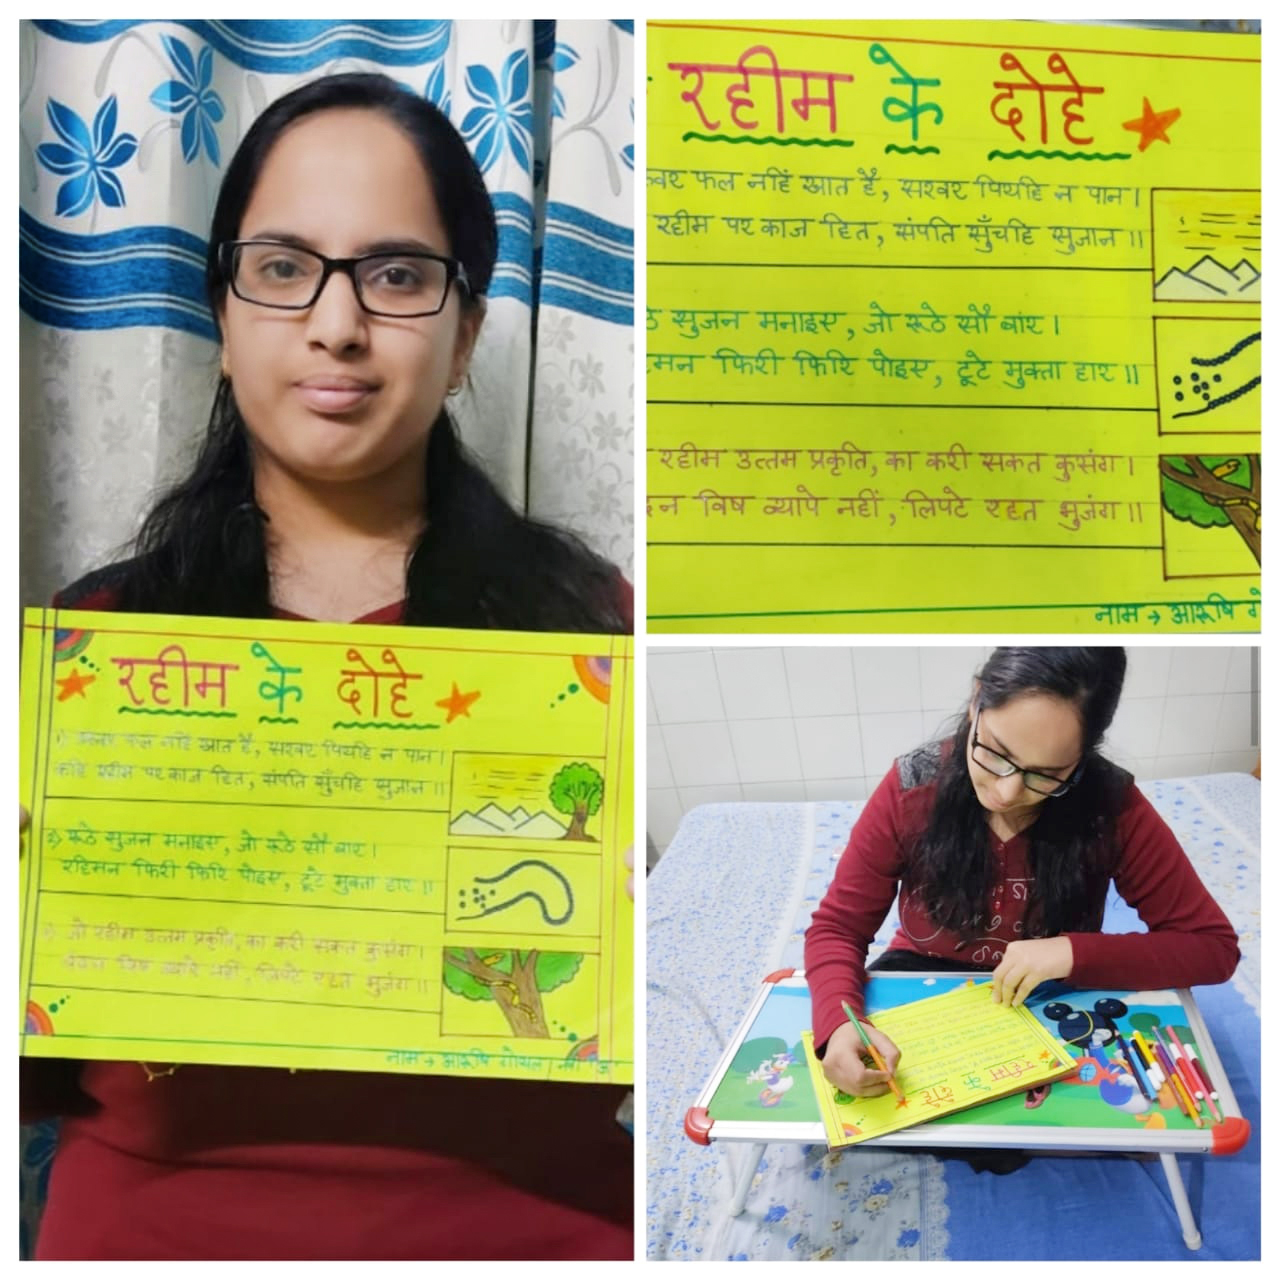 रहीम के दोहे
1) तरुवर फल नहिं खात है, सरवर पियहि न पान।
कहि रहीम पर काज हित, संपति सुँचहि सुजान॥
2) रूठे सुजन मनाइए, जो रूठे सौ बार।
रहिमन फिरी फिरि पोइए, टूटे मुक्ता हार॥
3) जो रहीम उत्तम प्रकृति, का करी सकत कुसंग।
चंदन विष व्यापे नहीं, लिपटे रहत भुजंग॥
नाम → आरूषि गोयल
रहीम के दोहे
फल नहिं खात है, सरवर पियहि न पान।
रहीम पर काज हित, संपति सुँचहि सुजान॥
सुजन मनाइए, जो रूठे सौ बार।
फिरी फिरि पोइए, टूटे मुक्ता हार॥
रहीम उत्तम प्रकृति, का करी सकत कुसंग।
विष व्यापे नहीं, लिपटे रहत भुजंग॥
नाम → आरूषि
रहीम के दोहे